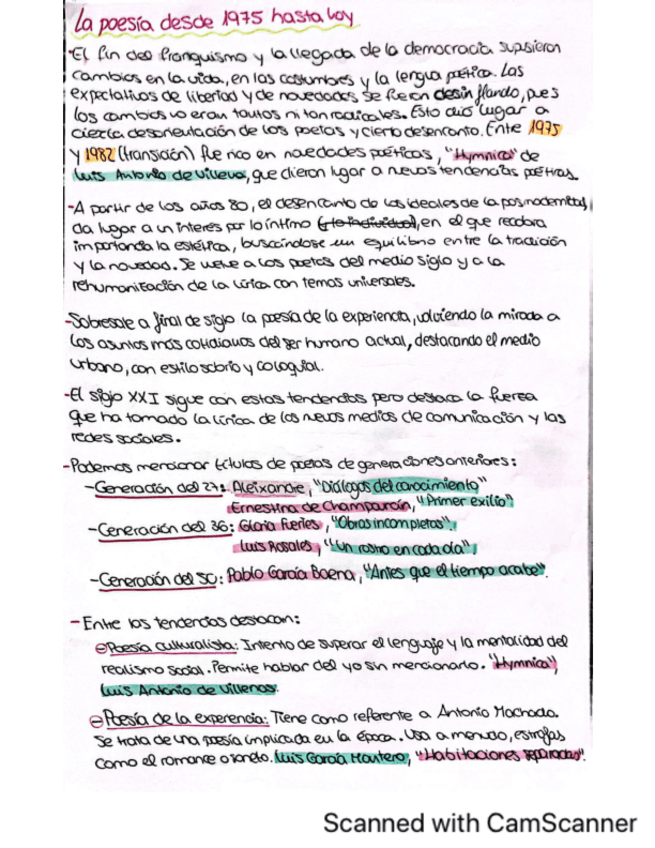 La poesía desde 1975 hasta hoy
-El fin del franquismo y la llegada de la democracia supusieron
cambios en la vida, en las costumbres y la lengua poética. Las
expectativas de libertad y de novedades se fueron desinflando, pues
los cambios no eran tantos ni tan radicales. Esto dio lugar a
cierta desorientación de los poetas y cierto desencanto. Entre 1975
y 1982 (transición) fue rico en novedades poéticas, "Hymnica" de
Luis Antonio de Villena, que dieron lugar a nuevas tendencias poéticas.
-A partir de los años 80, el desencanto de los ideales de la posmodernidad,
da lugar a un interés por lo íntimo (y lo individual), en el que recobra
importancia la estética, buscándose un equilibrio entre la tradición
y la novedad. Se vuelve a los poetas del medio siglo y a la
rehumanización de la lírica con temas universales.
-Sobresale a final de siglo la poesía de la experiencia, volviendo la mirada a
los asuntos más cotidianos del ser humano actual, destacando el medio
urbano, con estilo sobrio y coloquial.
-El siglo XXI sigue con estas tendencias pero destaca la fuerza
que ha tomado la lírica de los nuevos medios de comunicación y las
redes sociales.
-Podemos mencionar títulos de poetas de generaciones anteriores:
-Generación del 27: Aleixandre, "Diálogos del conocimiento"
Ernestina de Champourcín, "Primer exilio"
-Generación del 36: Gloria Fuertes, "Obras incompletas",
Luis Rosales, "Un rostro en cada ola",
-Generación del 50: Pablo García Baena, "Antes que el tiempo acabe".
- Entre las tendencias destacan:
⊖Poesía culturalista: Intento de superar el lenguaje y la mentalidad del
realismo social. Permite hablar del yo sin mencionarlo. "Hymnica",
Luis Antonio de Villena.
⊖Poesía de la experiencia: Tiene como referente a Antonio Machado.
Se trata de una poesía implicada en la época. Usa a menudo, estrofas
como el romance o soneto. Luis García Montero, "Habitaciones separadas".
Scanned with CamScanner